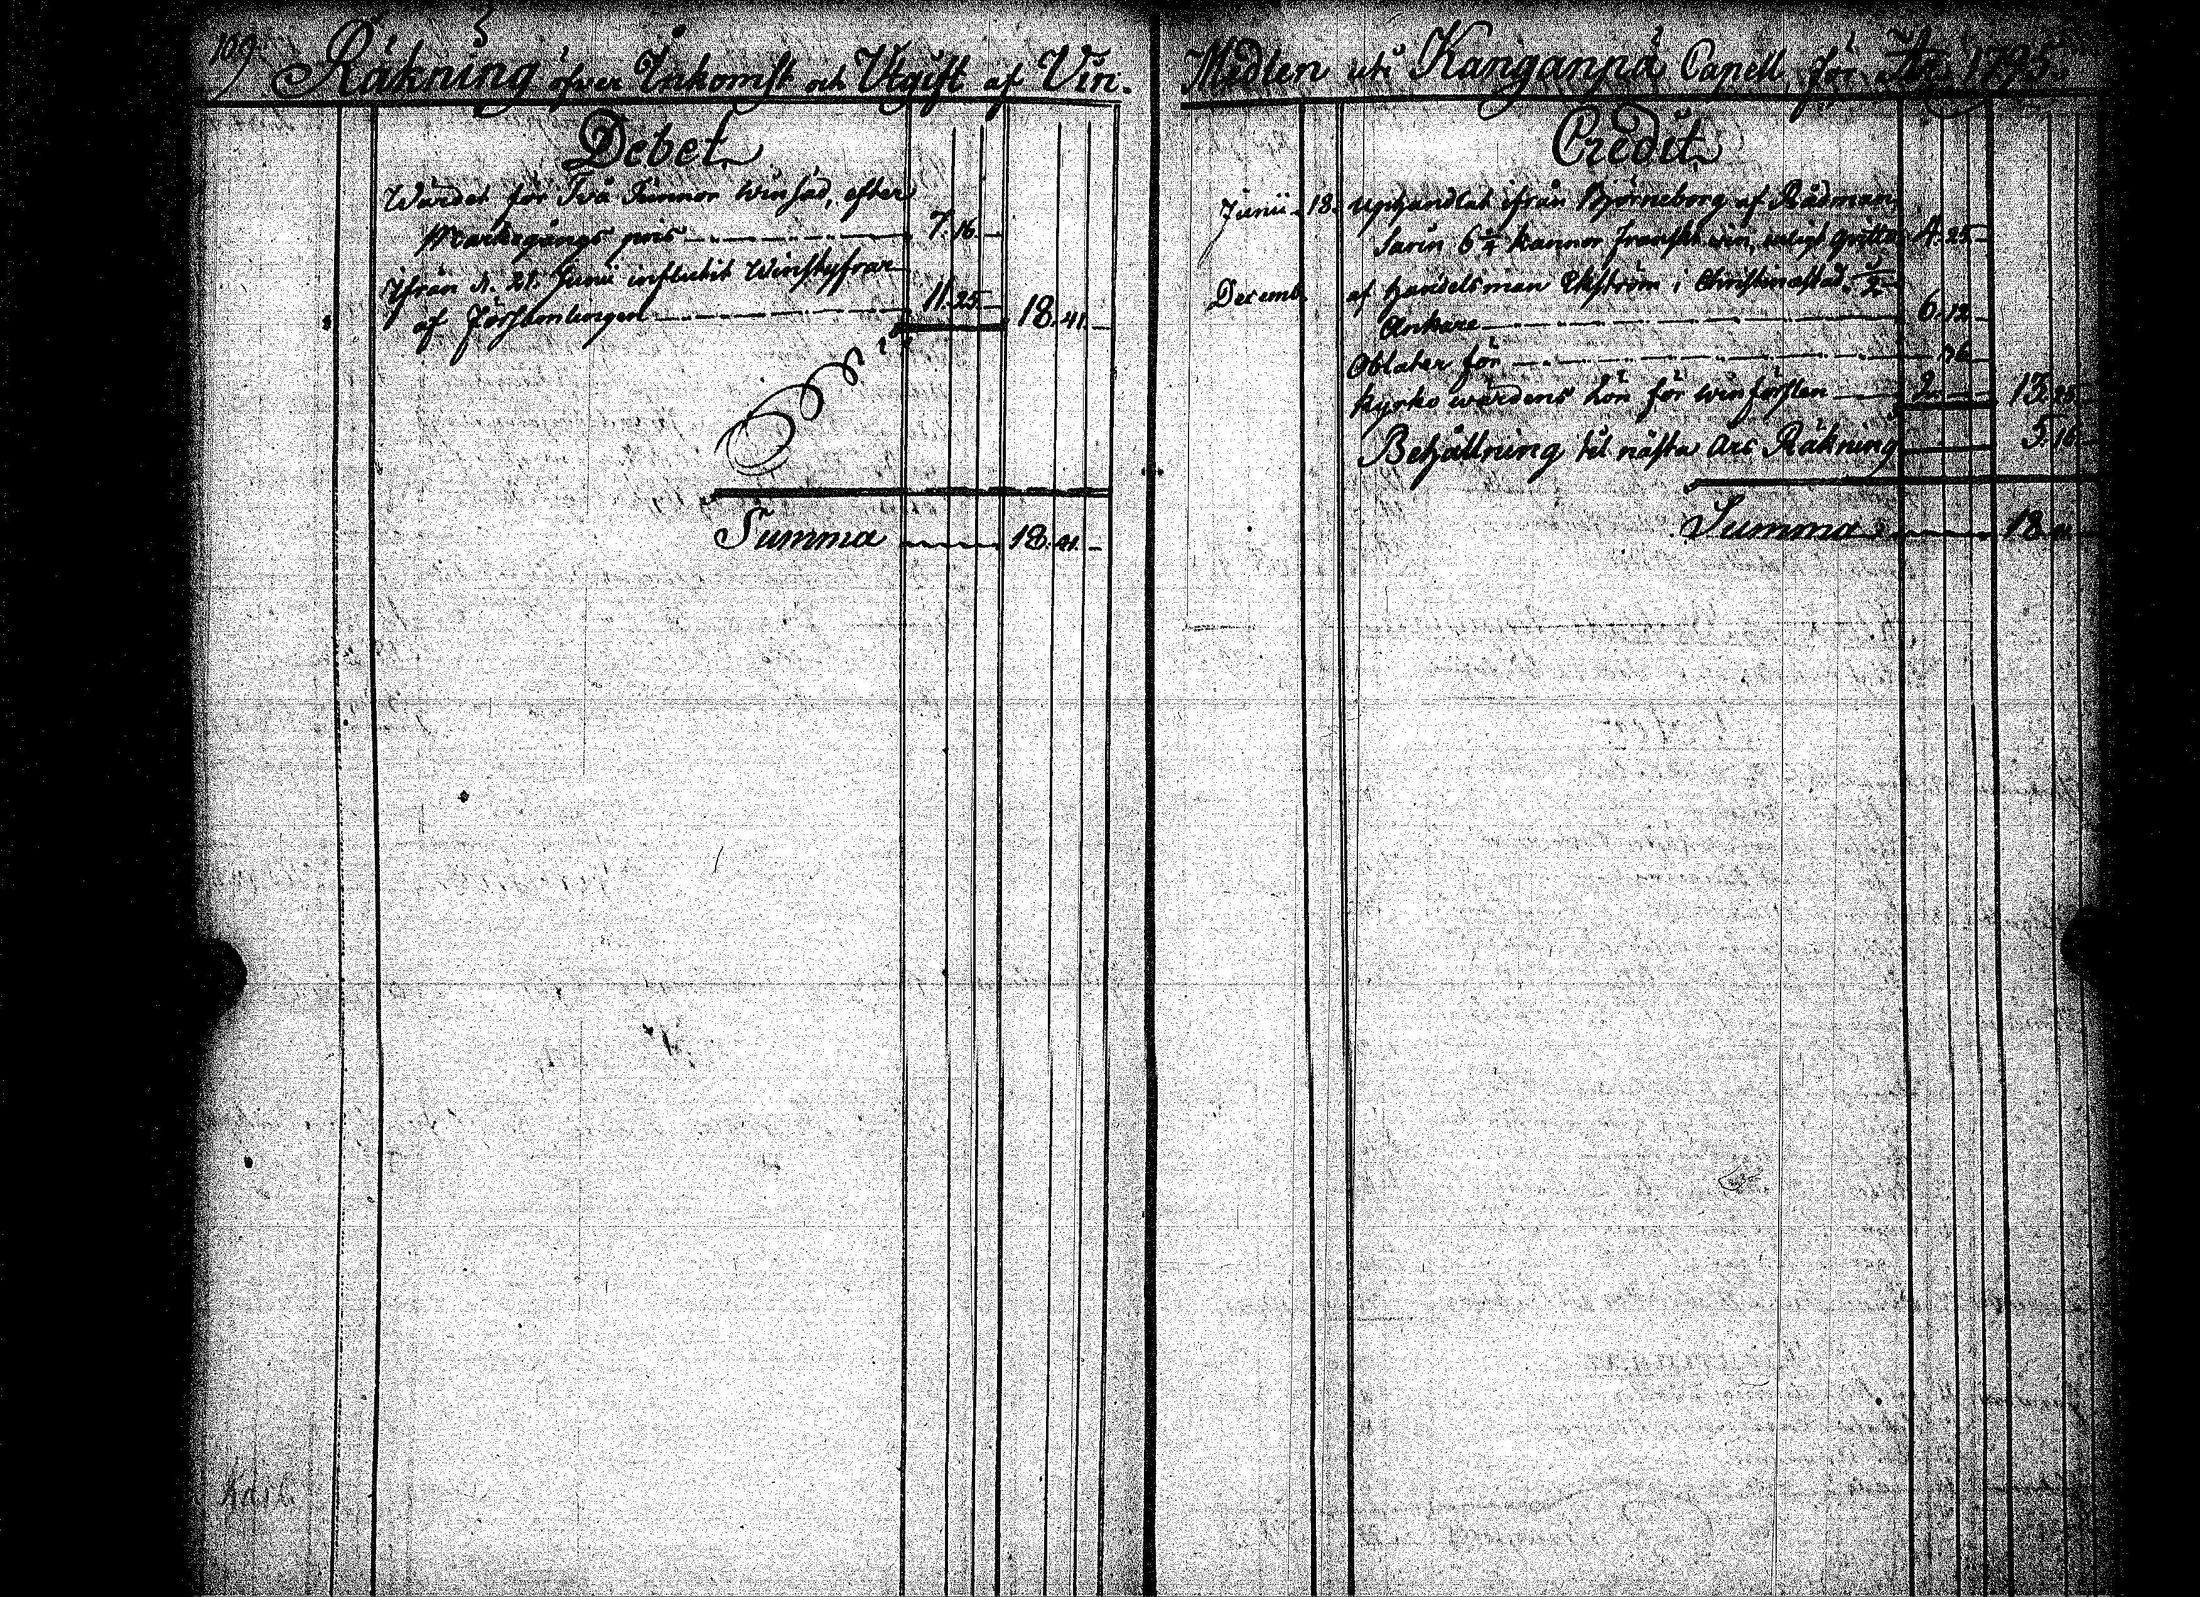 109.
Räkning öfver Inkomst och Utgift af Vin-
Debet
Wärdet för Två Tunnor winsäd, efter
Markegångs pris 7. 16. -
Ifrån d. 21. Junii influtit Winstyfrar
af Församlingen 11. 25. - 18. 41. -
Summa 18. 41. -
Medlen uti Kanganpä Capell för År 1795.
Credit
Junii 18. uphandlat ifrån Björneborg af Rådman
Sarin 6 3/4 kannor franskt win, enligt qvitto 4. 25. -
Decemb. af handelsman Ekström i Christinæstad
Ankare 6. 12. -
Oblater för 36. -
kyrko wärdens lön för winförslen 2. - - 13. 25. -
Behållning til nästa Års Räkning 5. 16. -
Summa 18. 41. -